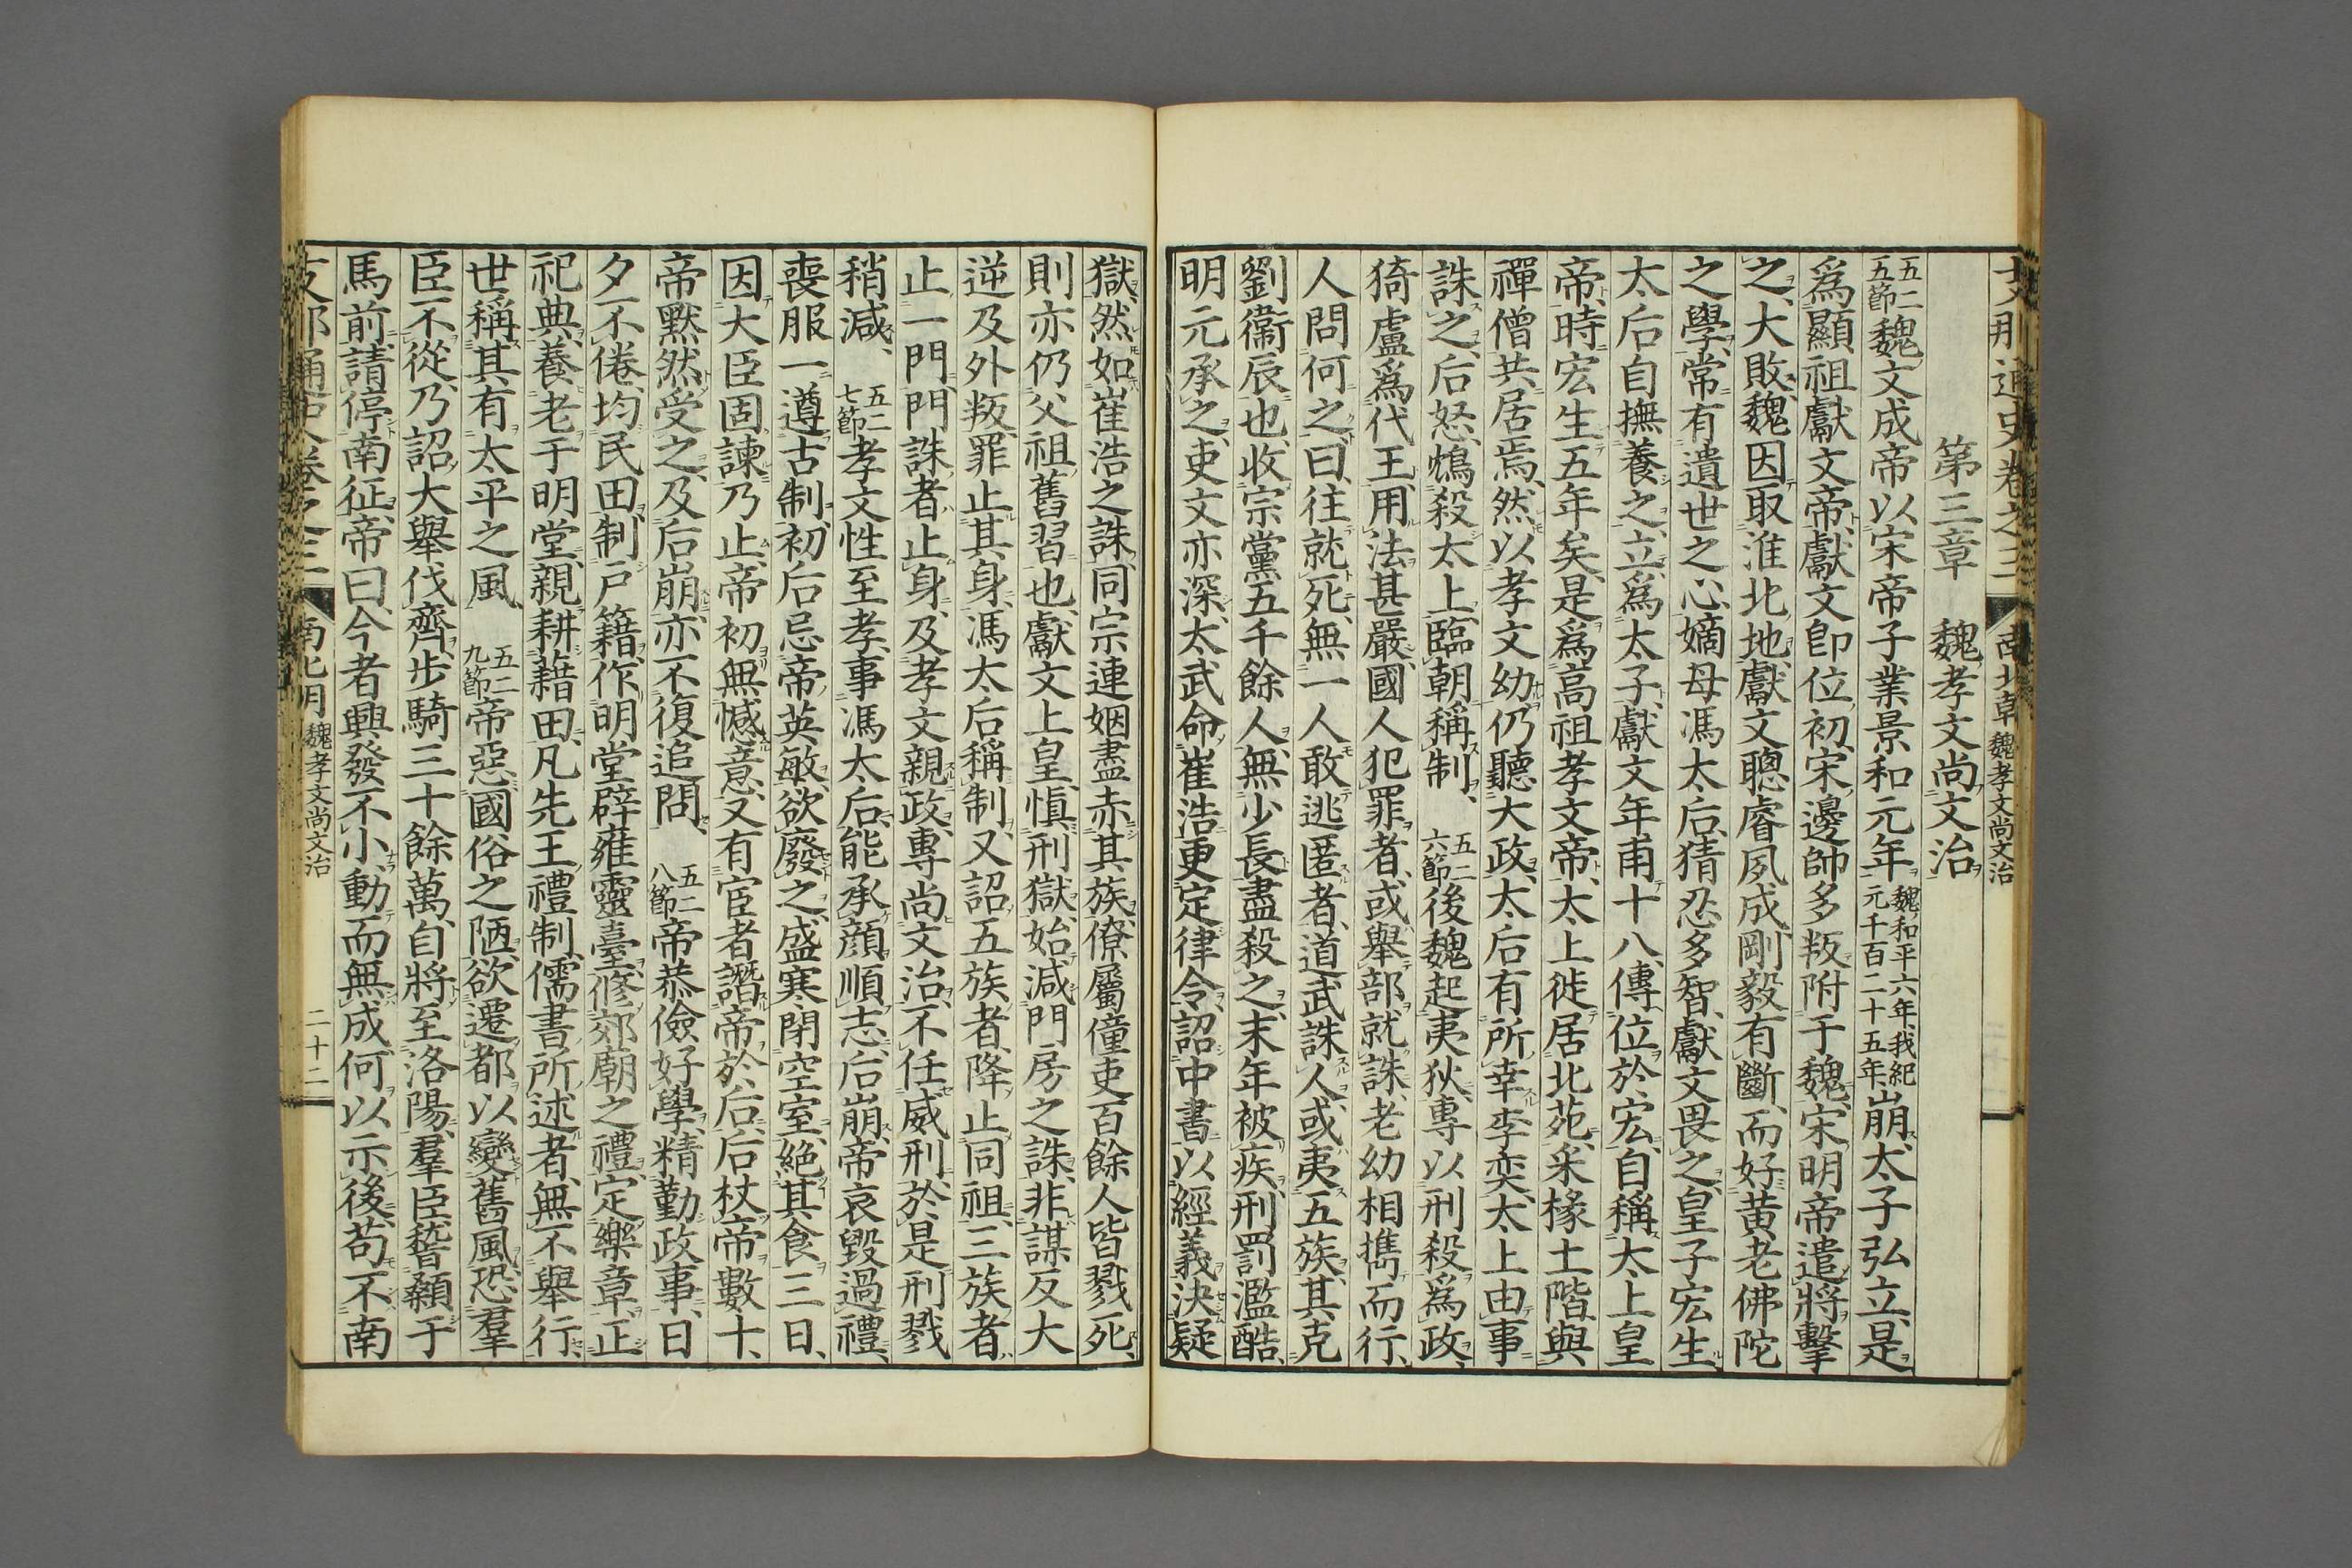 支那通史卷之三 南北朝 魏孝文尚文治
第三章 魏孝文尚文治
五二五節魏文成帝以宋帝子業景和元年魏和平六年、我紀元千百二十五年、崩、太子弘立、是
爲顯祖獻文帝、獻文卽位初、宋邊帥多叛附于魏、宋明帝遣將擊
之、大敗、魏因取淮北地、獻文聰睿夙成、剛毅有斷、而好黃老佛陀
之學、常有遺世之心、嫡母馮太后、猜忍多智、獻文畏之、皇子宏生、
太后自撫養之、立爲太子、獻文年甫十八、傳位於宏、自稱太上皇
帝、時宏生五年矣、是爲高祖孝文帝、太上徙居北苑、采椽土階、與
禪僧共居焉、然以孝文幼、仍聽大政、太后有所幸李奕、太上由事
誅之、后怒、鴆殺太上、臨朝稱制、 五二六節後魏起夷狄、專以刑殺爲政、
猗盧爲代王、用法甚嚴、國人犯罪者、或舉部就誅、老幼相攜而行、
人問何之、曰、往就死、無一人敢逃匿者、道武誅人、或夷五族、其克
劉衞辰也、收宗黨五千餘人、無少長盡殺之、末年被疾、刑罰濫酷、
明元承之、吏文亦深、太武命崔浩更定律令、詔中書以經義決疑
獄、然如崔浩之誅、同宗連姻盡赤其族、僚屬僮吏百餘人皆戮死、
則亦仍父祖舊習也、獻文上皇、愼刑獄、始減門房之誅、非謀反大
逆及外叛、罪止其身、馮太后稱制、又詔五族者、降止同祖、三族者
止一門、門誅者止身、及孝文親政、專尚文治、不任威刑、於是刑戮
稍減、 五二七節孝文性至孝、事馮太后、能承顏順志、后崩、帝哀毀過禮、
喪服一遵古制、初后忌帝英敏、欲廢之、盛寒閉空室、絕其食三日、
因大臣固諫乃止、帝初無憾意、又有宦者譖帝於后、后杖帝數十、
帝默然受之、及后崩、亦不復追問、 五二八節帝恭儉好學、精勤政事、日
夕不倦、均民田、制戶籍、作明堂辟雍靈臺、修郊廟之禮、定樂章、正
祀典、養老于明堂、親耕藉田、凡先王禮制、儒書所述者、無不舉行、
世稱其有太平之風、 五二九節帝惡國俗之陋、欲遷都以變舊風、恐羣
臣不從、乃詔大舉伐齊、步騎三十餘萬、自將至洛陽、羣臣稽顙于
馬前、請停南征、帝曰、今者興發不小、動而無成、何以示後、苟不南
支那通史卷之三 南北朝 魏孝文尚文治 二十二